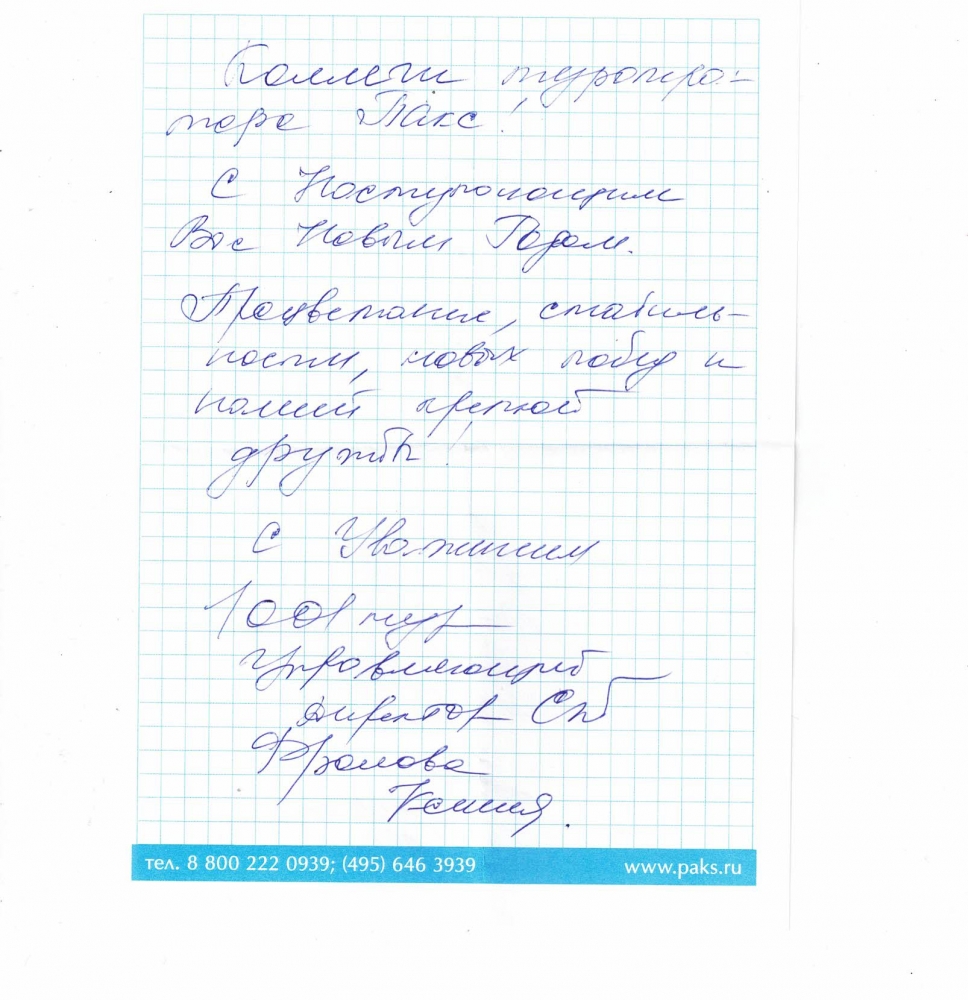 Коллеги туропра-
тора Пакс!
С Наступающим
Вас Новым Годом.
Процветания, стабиль-
ности, новых побед и
нашей крепкой
дружбы!
С Уважением
1001 тур
Управляющий
директор Спб
Фролова
Ксения.
тел. 8 800 222 0939; (495) 646 3939 www.paks.ru